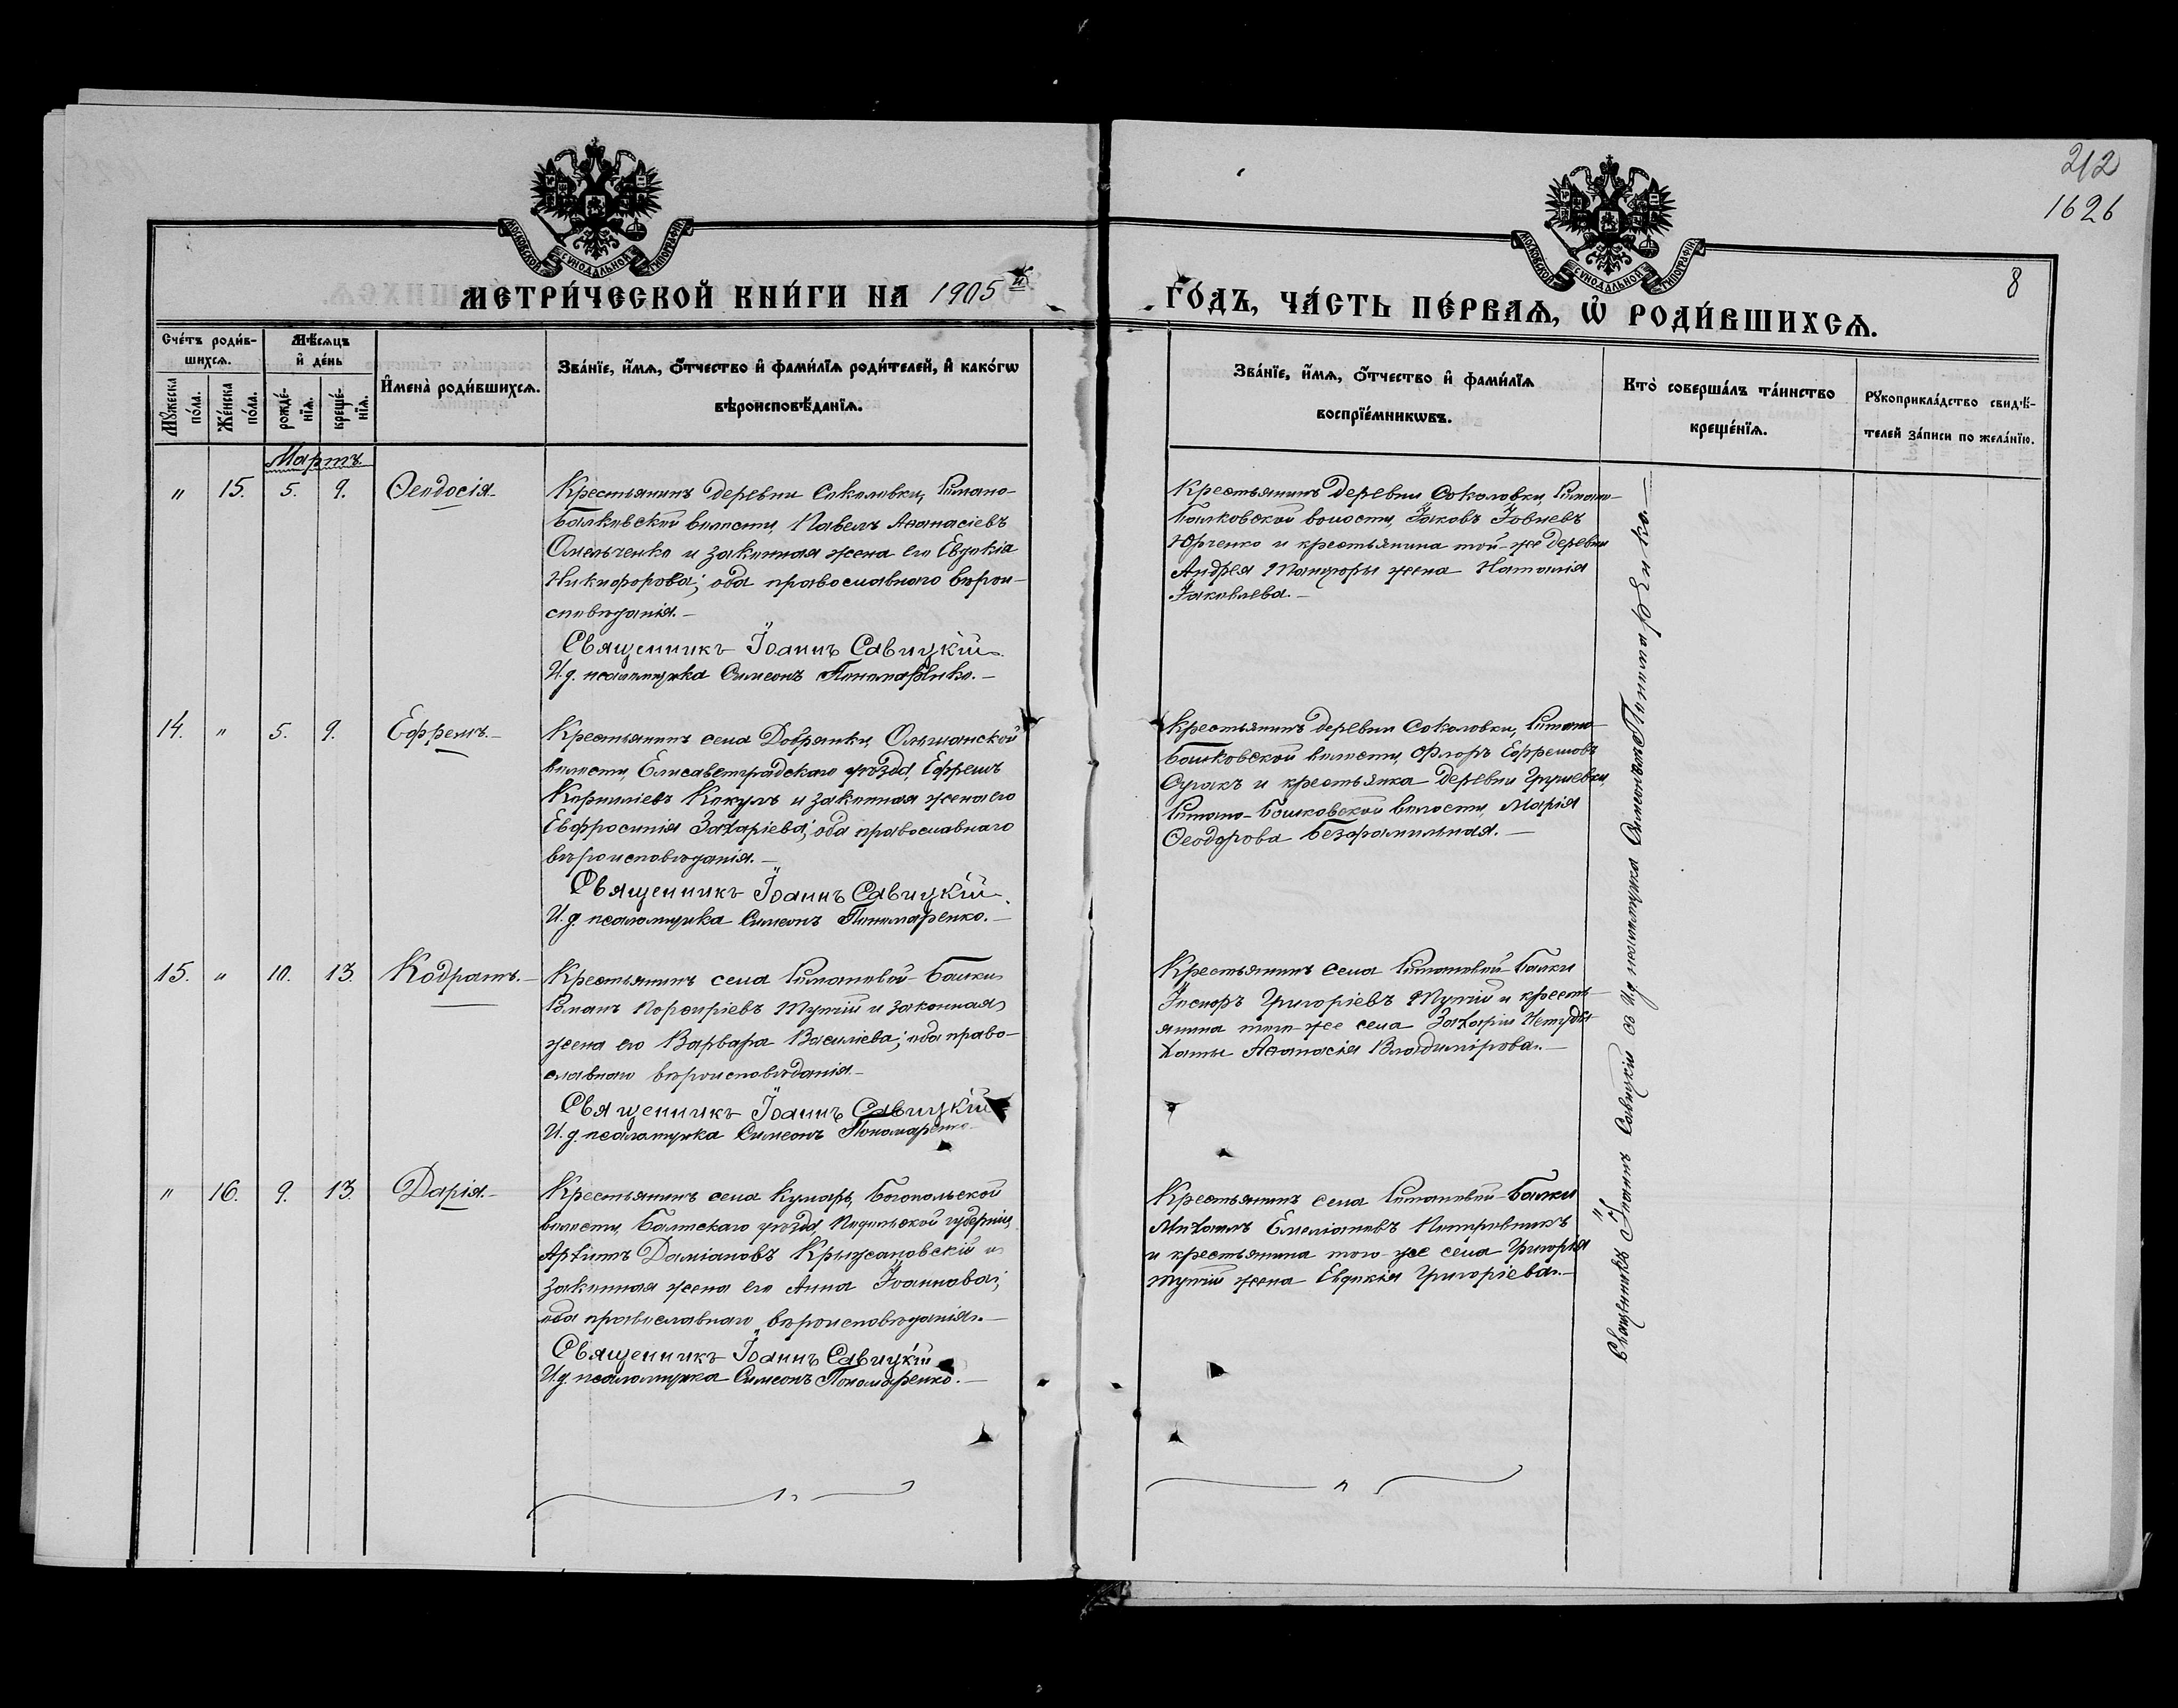 212
1626
8
МОСКОВСКОЙ СѴНОДАЛЬНОЙ ТИПОГРАФІИ
МОСКОВСКОЙ СѴНОДАЛЬНОЙ ТИПОГРАФІИ
МЕТРИ́ЧЕСКОЙ КНИ́ГИ НА 1905 й
ГО́ДЪ, ЧА́СТЬ ПЕ́РВАѦ, Ѡ҆ РОДИ́ВШИХСѦ.
Сче́тъ роди́в-
шихсѧ.
Мꙋ́жеска по́ла.
Же́нска по́ла.
Мѣ́сѧцъ
и҆ де́нь
рожде́-
нїѧ.
креще́-
нїѧ.
И҆мена̀ роди́вшихсѧ.
Зва́нїе, и҆́мѧ, ѻ҆́тчество и҆ фами́лїѧ роди́телей, и҆ како́гѡ
вѣроисповѣ́данїѧ.
Зва́нїе, и҆́мѧ, ѻ҆́тчество и҆ фами́лїѧ
воспрїе́мникѡвъ.
Кто̀ соверша́лъ та́инство
креще́нїѧ.
Рꙋкоприкла́дство свидѣ́-
телей за́писи по жела́нїю.
Мартъ.
" 15. 5. 9. Ѳеодосія.
Крестьянинъ деревни Соколовки, Римано-
Балковской волости, Павелъ Аѳанасіевъ
Омельченко и законная жена его Евдокія
Никифорова; оба православнаго вѣрои-
сповѣданія.
Священникъ Іоаннъ Савицкій.
И. д. псаломщика Симеонъ Пономаренко.
Крестьянинъ деревни Соколовки, Римано-
Балковской волости, Іаковъ Іовиевъ
Юрченко и крестьянина той-же деревни
Андрея жена Наталія
Іаковлева.
14. " 5. 9. Ефремъ.
Крестьянинъ села Добрянки, Ольшанской
волости, Елисаветградскаго уѣзда, Ефремъ
Корниліевъ Кокулъ и законная жена его
Евфросинія Захаріева; оба православнаго
вѣроисповѣданія.
Священникъ Іоаннъ Савицкій.
И. д. псаломщика Симеонъ Пономаренко.
Крестьянинъ деревни Соколовки, Римано-
Балковской волости, Флоръ Ефремовъ
и крестьянка деревни
Римано-Балковской волости, Марія
Ѳеодорова Безфамильная.
15. " 10. 13. Кодратъ.
Крестьянинъ села Римановой-Балки
Романъ Порфиріевъ Путій и законная
жена его Варвара Василіева; оба право-
славнаго вѣроисповѣданія.
Священникъ Іоаннъ Савицкій
И. д. псаломщика Симеонъ Пономаренко
Крестьянинъ села Римановой-Балки
Григоріевъ Путій и кресть-
янина того-же села Захаріи
Аѳанасія Владимірова.
" 16. 9. 13. Дарія.
Крестьянинъ села Кумаръ, Богопольской
волости, Балтскаго уѣзда, Подольской губерніи,
Даміановъ Крыжановскій и
законная жена его Анна Іоаннова;
оба православнаго вѣроисповѣданія.
Священникъ Іоаннъ Савицкій
И. д. псаломщика Симеонъ Пономаренко.
Крестьянинъ села Римановой-Балки
Михаилъ Емеліановъ
и крестьянина того-же села Григорія
Путій жена Евдокія Григоріева.
Священникъ Іоаннъ Савицкій съ И. д. псаломщика Симеономъ Пономаренко.